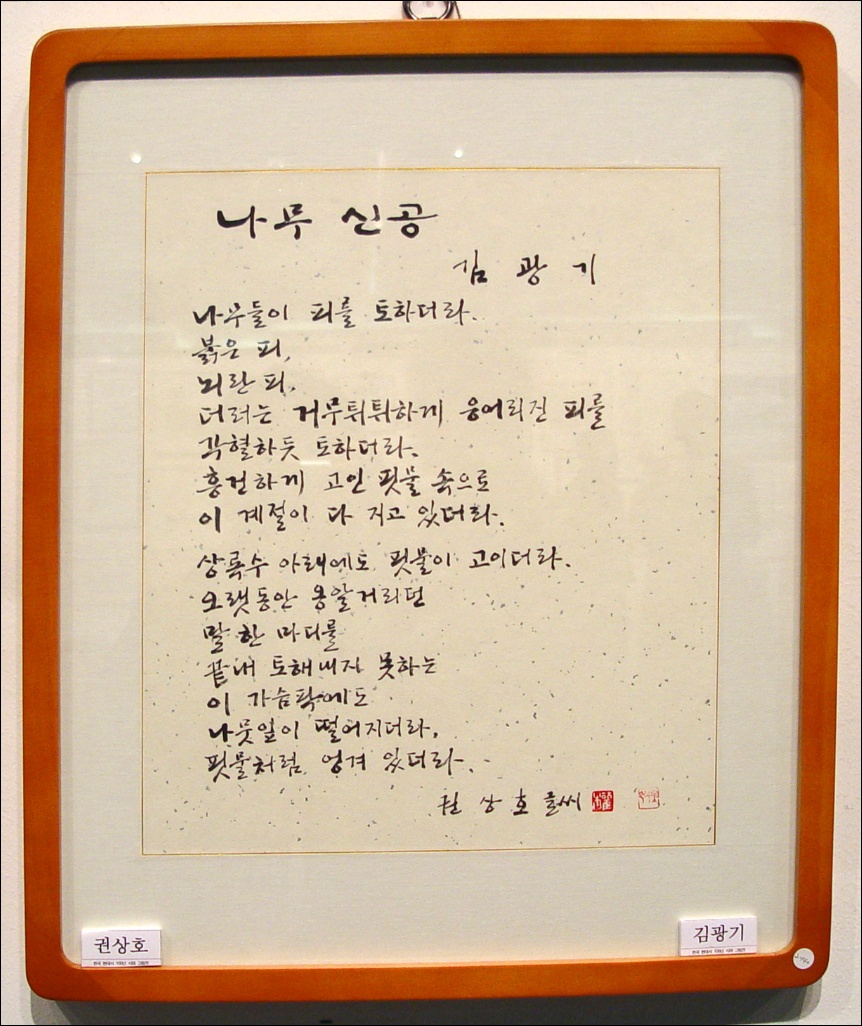 나무 신공
김 광 기
나무들이 피를 토하더라.
붉은 피,
뇌란 피,
더러는 거무튀튀하게 응어리진 피를
각혈하듯 토하더라.
흥건하게 고인 핏물 속으로
이 계절이 다 지고 있더라.
상록수 아래에도 핏물이 고이더라.
오랫동안 옹알거리던
말 한 마디를
끝내 토해내지 못하는
이 가슴팍에도
나뭇잎이 떨어지더라,
핏물처럼 엉겨 있더라.
권 상 호 글씨
권상호
김광기